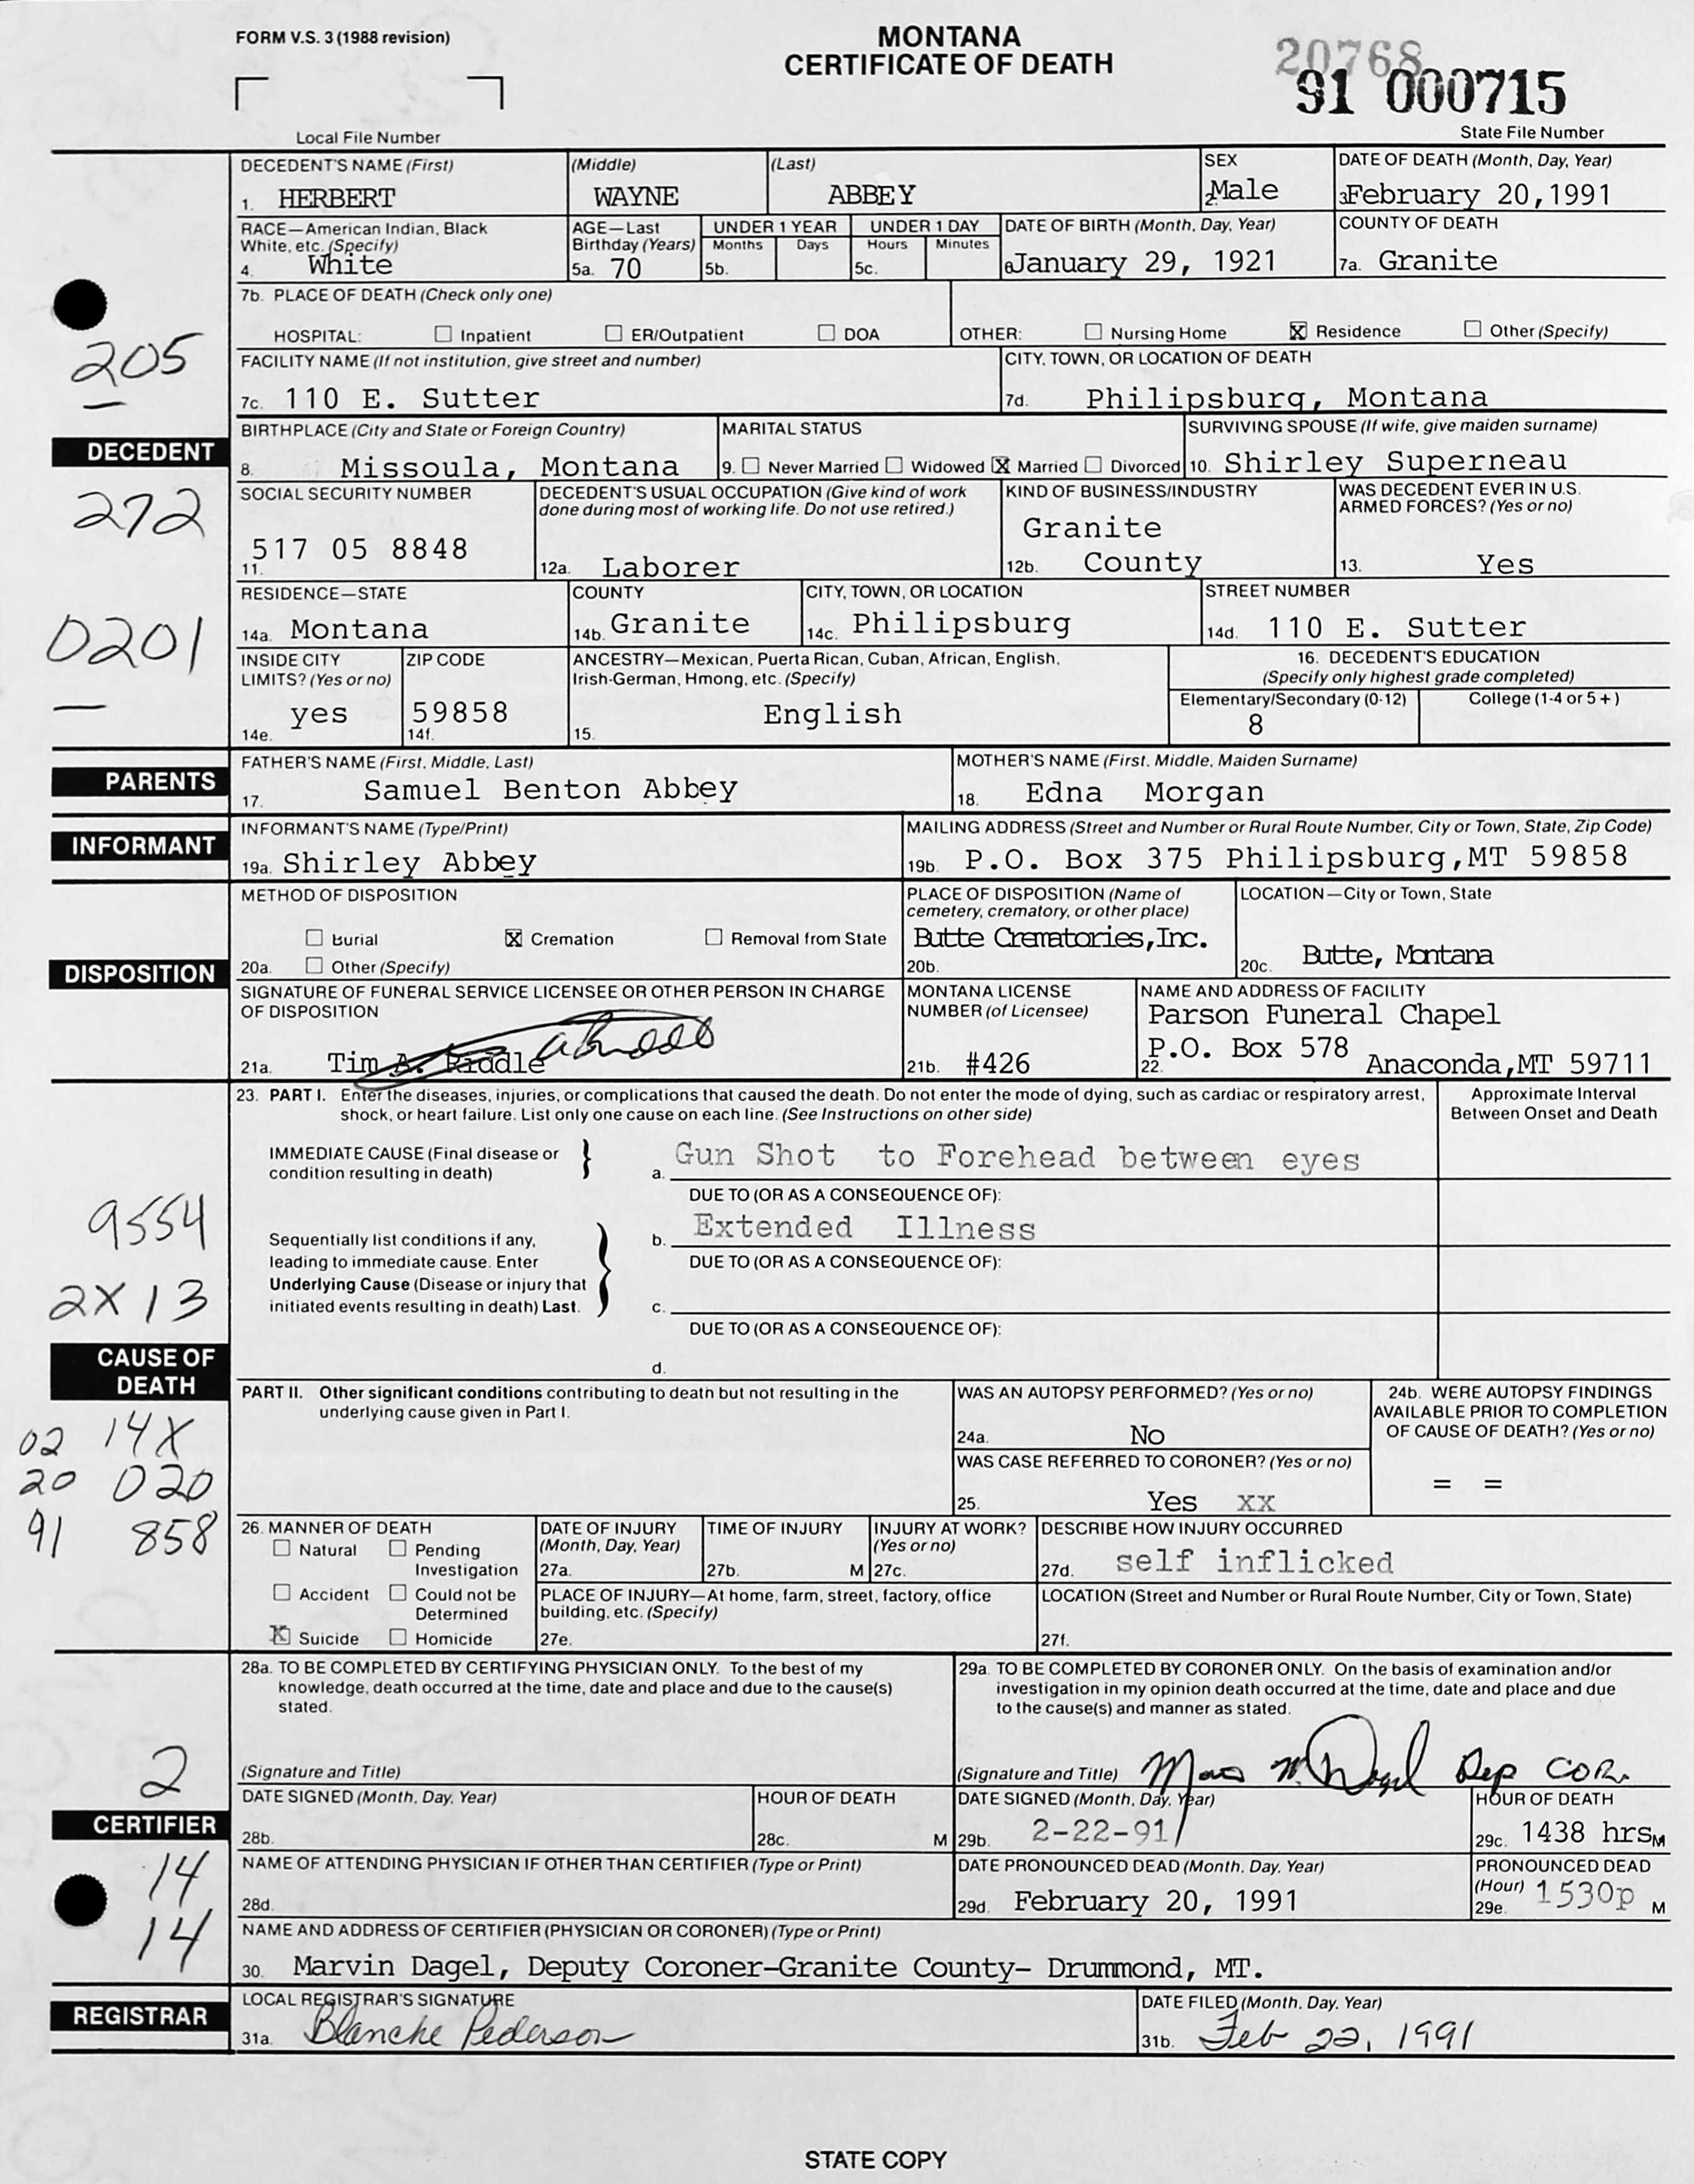 FORM V.S. 3 (1988 revision)
MONTANA
CERTIFICATE OF DEATH
20768
91 000715
Local File Number
State File Number
DECEDENT'S NAME (First) (Middle) (Last) SEX DATE OF DEATH (Month, Day, Year)
1. HERBERT WAYNE ABBEY 2. Male 3. February 20, 1991
RACE—American Indian, Black AGE—Last UNDER 1 YEAR UNDER 1 DAY DATE OF BIRTH (Month, Day, Year) COUNTY OF DEATH
White, etc. (Specify) Birthday (Years) Months Days Hours Minutes
4. White 5a. 70 5b. 5c. 6. January 29, 1921 7a. Granite
7b. PLACE OF DEATH (Check only one)
HOSPITAL: ☐ Inpatient ☐ ER/Outpatient ☐ DOA OTHER: ☐ Nursing Home ☒ Residence ☐ Other (Specify)
205
FACILITY NAME (If not institution, give street and number) CITY, TOWN, OR LOCATION OF DEATH
7c. 110 E. Sutter 7d. Philipsburg, Montana
DECEDENT
BIRTHPLACE (City and State or Foreign Country) MARITAL STATUS SURVIVING SPOUSE (If wife, give maiden surname)
8. Missoula, Montana 9. ☐ Never Married ☐ Widowed ☒ Married ☐ Divorced 10. Shirley Superneau
272
SOCIAL SECURITY NUMBER DECEDENT'S USUAL OCCUPATION (Give kind of work KIND OF BUSINESS/INDUSTRY WAS DECEDENT EVER IN U.S.
done during most of working life. Do not use retired.) ARMED FORCES? (Yes or no)
Granite
517 05 8848
11. 12a. Laborer 12b. County 13. Yes
RESIDENCE—STATE COUNTY CITY, TOWN, OR LOCATION STREET NUMBER
0201
14a. Montana 14b. Granite 14c. Philipsburg 14d. 110 E. Sutter
INSIDE CITY ZIP CODE ANCESTRY—Mexican, Puerta Rican, Cuban, African, English, 16. DECEDENT'S EDUCATION
LIMITS? (Yes or no) Irish-German, Hmong, etc. (Specify) (Specify only highest grade completed)
Elementary/Secondary (0-12) College (1-4 or 5+)
14e. yes 14f. 59858 15. English 8
PARENTS
FATHER'S NAME (First, Middle, Last) MOTHER'S NAME (First, Middle, Maiden Surname)
17. Samuel Benton Abbey 18. Edna Morgan
INFORMANT
INFORMANT'S NAME (Type/Print) MAILING ADDRESS (Street and Number or Rural Route Number, City or Town, State, Zip Code)
19a. Shirley Abbey 19b. P.O. Box 375 Philipsburg,MT 59858
METHOD OF DISPOSITION PLACE OF DISPOSITION (Name of LOCATION—City or Town, State
cemetery, crematory, or other place)
☐ Burial ☒ Cremation ☐ Removal from State Butte Crematories,Inc. Butte, Montana
DISPOSITION
20a. ☐ Other (Specify) 20b. 20c.
SIGNATURE OF FUNERAL SERVICE LICENSEE OR OTHER PERSON IN CHARGE MONTANA LICENSE NAME AND ADDRESS OF FACILITY
OF DISPOSITION NUMBER (of Licensee) Parson Funeral Chapel
P.O. Box 578
21a. Tim A. Riddle 21b. #426 22. Anaconda,MT 59711
23. PART I. Enter the diseases, injuries, or complications that caused the death. Do not enter the mode of dying, such as cardiac or respiratory arrest, Approximate Interval
shock, or heart failure. List only one cause on each line. (See Instructions on other side) Between Onset and Death
IMMEDIATE CAUSE (Final disease or
condition resulting in death) a. Gun Shot to Forehead between eyes
DUE TO (OR AS A CONSEQUENCE OF):
9554
Sequentially list conditions if any, b. Extended Illness
leading to immediate cause. Enter DUE TO (OR AS A CONSEQUENCE OF):
Underlying Cause (Disease or injury that
2X13
initiated events resulting in death) Last. c.
DUE TO (OR AS A CONSEQUENCE OF):
CAUSE OF
DEATH
d.
PART II. Other significant conditions contributing to death but not resulting in the WAS AN AUTOPSY PERFORMED? (Yes or no) 24b. WERE AUTOPSY FINDINGS
underlying cause given in Part I. AVAILABLE PRIOR TO COMPLETION
OF CAUSE OF DEATH? (Yes or no)
24a. No
02 14X
WAS CASE REFERRED TO CORONER? (Yes or no)
20 020
= =
25. Yes xx
91 858
26. MANNER OF DEATH DATE OF INJURY TIME OF INJURY INJURY AT WORK? DESCRIBE HOW INJURY OCCURRED
☐ Natural ☐ Pending (Month, Day, Year) (Yes or no)
Investigation 27a. 27b. M 27c. 27d. self inflicked
☐ Accident ☐ Could not be PLACE OF INJURY—At home, farm, street, factory, office LOCATION (Street and Number or Rural Route Number, City or Town, State)
Determined building, etc. (Specify)
☒ Suicide ☐ Homicide 27e. 27f.
28a. TO BE COMPLETED BY CERTIFYING PHYSICIAN ONLY. To the best of my 29a. TO BE COMPLETED BY CORONER ONLY. On the basis of examination and/or
knowledge, death occurred at the time, date and place and due to the cause(s) investigation in my opinion death occurred at the time, date and place and due
stated. to the cause(s) and manner as stated.
2
(Signature and Title) (Signature and Title) Dagel Dep COR.
DATE SIGNED (Month, Day, Year) HOUR OF DEATH DATE SIGNED (Month, Day, Year) HOUR OF DEATH
CERTIFIER
28b. 28c. M 29b. 2-22-91 29c. 1438 hrs M
14
NAME OF ATTENDING PHYSICIAN IF OTHER THAN CERTIFIER (Type or Print) DATE PRONOUNCED DEAD (Month, Day, Year) PRONOUNCED DEAD
(Hour)
28d. 29d. February 20, 1991 29e. 1530p M
14
NAME AND ADDRESS OF CERTIFIER (PHYSICIAN OR CORONER) (Type or Print)
30. Marvin Dagel, Deputy Coroner-Granite County- Drummond, MT.
REGISTRAR
LOCAL REGISTRAR'S SIGNATURE DATE FILED (Month, Day, Year)
31a. Blanche Pederson 31b. Feb 22, 1991
STATE COPY